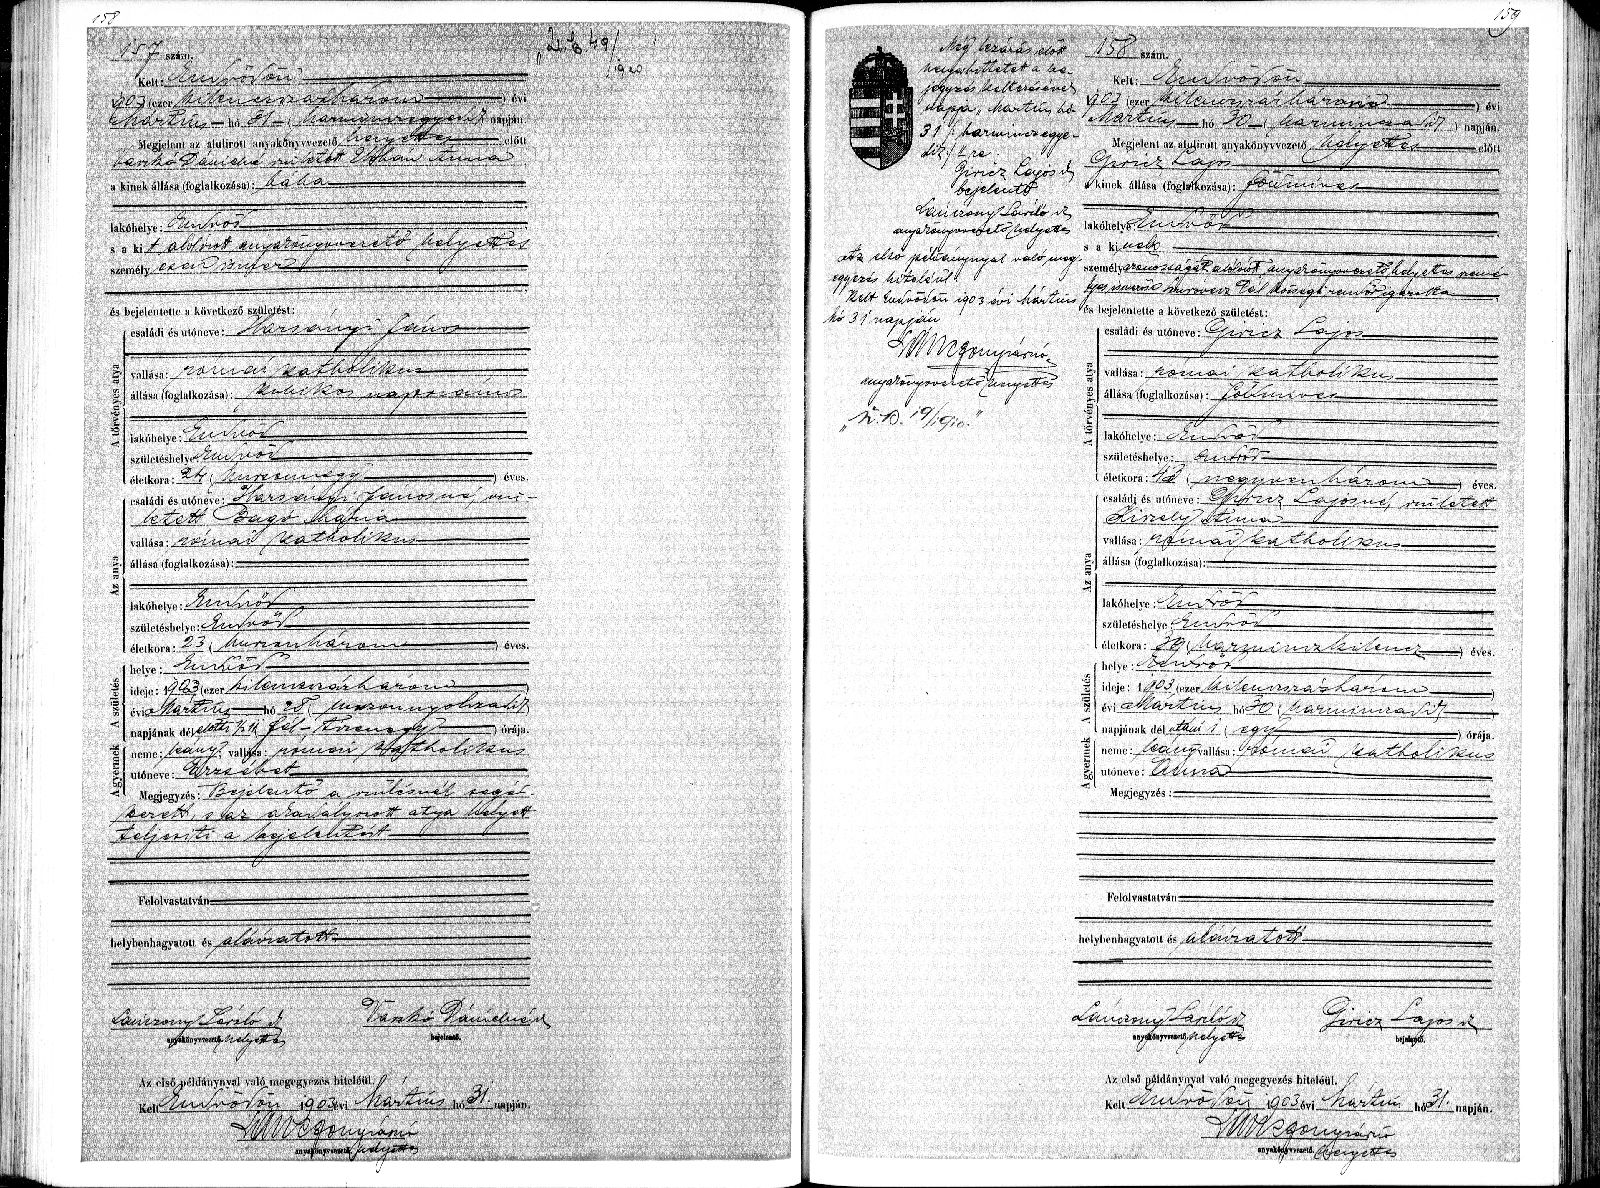 158
157 szám.
Kelt: Endrődön
1903 (ezer kilenczszázhárom) évi
Március hó 31 (harminczegyedik) napján.
Megjelent az alulirott anyakönyvvezető helyettes előtt
Varjú Dánielné született Anna
a kinek állása (foglalkozása): bába
lakóhelye: Endrőd
s a kit alulírott anyakönyvvezető helyettes
személyesen ismer
és bejelentette a következő születést:
A törvényes atya
családi és utóneve: Harsányi János
vallása: római katholikus
állása (foglalkozása): kubikos napszámos
lakóhelye: Endrőd
születéshelye: Endrőd
életkora: 24 (huszonnégy) éves.
Az anya
családi és utóneve: Harsányi Jánosné, szü-
letett Bagó Mária
vallása: római katholikus
állása (foglalkozása):
lakóhelye: Endrőd
születéshelye: Endrőd
életkora: 23 (huszonhárom) éves.
A születés
helye: Endrőd
ideje: 1903 (ezer kilenczszázhárom)
évi Március hó 28 (huszonnyolczadik)
napjának dél előtti ( fél- ) órája.
A gyermek
neme: leány; vallása: római katholikus
utóneve: Erzsébet
Megjegyzés: Bejelentő a szülésnél segéd-
kezett, s az akadályozott atya helyett
teljesíti a bejelentést
Felolvastatván
helybenhagyatott és aláíratott
László s.k. Dánielné s.k.
anyakönyvvezető helyettes bejelentő.
Az első példánynyal való megegyezés hiteléül.
Kelt Endrődön 1903 évi Március hó 31. napján.
anyakönyvvezető helyettes
49/
1920
159
Még lezárás előtt
helyesbíttetett a be-
jegyzés keltezésének
napja, Március hó
31 /: harminczegye-
dik :/ re.
Giricz Lajos sk
bejelentő
László sk
anyakönyvvezető helyettes
Az első példánynyal való meg-
egyezés hiteléül.
Kelt Endrődön 1903 évi Március
hó 31 napján
anyakönyvvezető helyettes
19/1910."
158 szám.
Kelt: Endrődön
1903 (ezer kilenczszázhárom) évi
Március hó 30 (harminczadik) napján.
Megjelent az alulirott anyakönyvvezető helyettes előtt
Giricz Lajos
a kinek állása (foglalkozása): földmíves
lakóhelye: Endrőd
s a kinek
személyazonosságát alulírott anyakönyvvezető helyettes személyes
Pál községi rendőr igazolta
és bejelentette a következő születést:
A törvényes atya
családi és utóneve: Giricz Lajos
vallása: római katholikus
állása (foglalkozása): földmíves
lakóhelye: Endrőd
születéshelye: Endrőd
életkora: 43 (negyvenhárom) éves.
Az anya
családi és utóneve: Giricz Lajosné, született
Király Anna
vallása: római katholikus
állása (foglalkozása):
lakóhelye: Endrőd
születéshelye: Endrőd
életkora: 39 (harminczkilencz) éves.
A születés
helye: Endrőd
ideje: 1903 (ezer kilenczszázhárom)
évi Március hó 30 (harminczadik)
napjának dél utáni 1 (egy) órája.
A gyermek
neme: leány vallása: római katholikus
utóneve: Anna
Megjegyzés:
Felolvastatván
helybenhagyatott és aláíratott
László sk Giricz Lajos sk
anyakönyvvezető helyettes bejelentő.
Az első példánynyal való megegyezés hiteléül.
Kelt Endrődön 1903 évi Március hó 31. napján.
anyakönyvvezető. helyettes